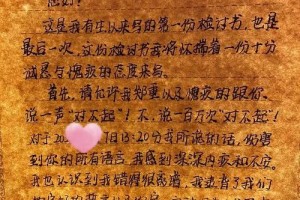 您好！
这是我有生以来写的第一份检讨书，也是
最后一次，这份检讨书我将怀揣着一份十分
诚恳与愧疚的态度来写。
首先，请允许我郑重以及愧疚的跟你，
说一声“对不起”！不，说一百万次“对不起”！
对于10 1日13:20分我所说的话，伤害
到你的所有语言，我感到深深内疚和不安。
我也认识到我错得很离谱，我违背了我们